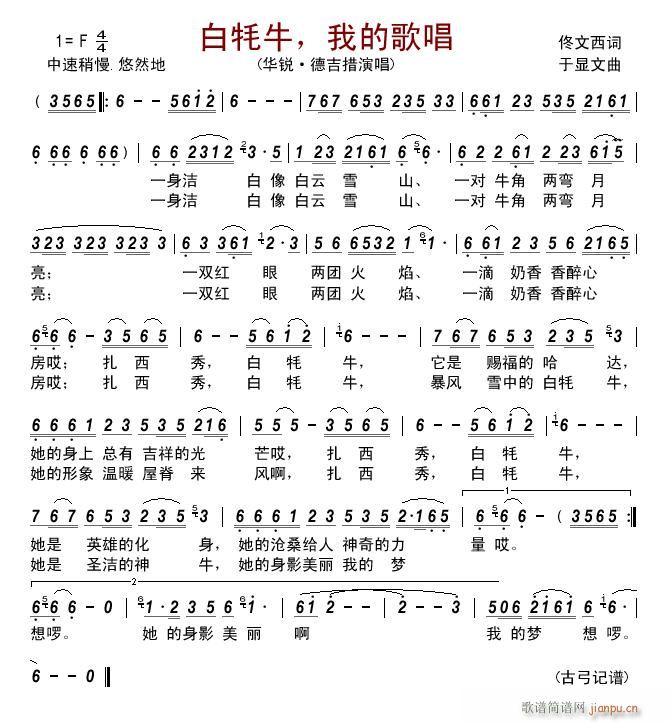 白牦牛，我的歌唱
1= F 4/4
佟文西词
中速稍慢.悠然地
(华锐·德吉措演唱)
于显文曲
( 3565 ‖: 6 - - 5612 | 6 - - - | 767 653 352 235 | 661 235 535 2161 |
6 66 6 66 ) | 6 6 2312 3· 5 | 1 23 2161 6 6· | 6 2 2161 2 23 615 |
一身洁 白 像 白云 雪 山、 一对 牛角 两弯 月
一身洁 白 像 白云 雪 山、 一对 牛角 两弯 月
323 323 323 3 | 6 3 361 2· 3 | 5 6 6532 1 1· | 6 61 2 3 5 2165 |
亮； 一双红 眼 两团 火 焰、 一滴 奶香 香醉心
亮； 一双红 眼 两团 火 焰、 一滴 奶香 香醉心
6 6 6 - 5 5 | 6 - - 5 6 1 2 | 6 - - - | 7 67 653 2 35 3 |
房哎； 扎 西 秀， 白 牦 牛， 它是 赐福的 哈 达，
房哎； 扎 西 秀， 白 牦 牛， 暴风 雪中的 白牦 牛，
6 661 2 3 535 216 | 5 55 - 5 5 | 6 - - 5 6 1 2 | 6 - - - |
她的身上 总有 吉祥的光 芒哎， 扎 西 秀， 白 牦 牛，
她的形象 温暖 屋脊 来 风啊， 扎 西 秀， 白 牦 牛，
7 67 653 2 35 3 | 6661 2353 535 2·165 | 6 6 6 - ( 3565 :‖
1
她是 英雄的化 身， 她的沧桑给人 神奇的力 量 哎。
她是 圣洁的神 牛， 她的身影美丽 我的 梦
2
6 6 6 - 0 | 1· 2 3 5 2 3 | 61 - - - | 2 - - 0 | 506 2161 6 6 |
想啰。 她 的身影 美 丽 啊 我 的 梦 想 啰。
6 - - 0 ‖
(古弓记谱)
歌谱简谱网
jianpu.cn